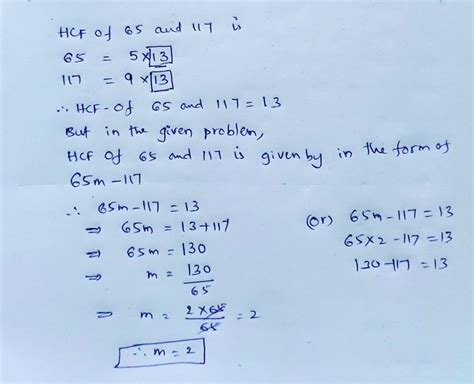 HCF of 65 and 117 is
65 = 5×13
117 = 9×13
∴ HCF-Of 65 and 117 = 13
But in the given problem,
HCF Of 65 and 117 is given by in the form of
65m-117
∴ 65m-117 = 13
⇒ 65m = 13+117
⇒ 65m = 130
⇒ m = 130/65
⇒ m = 2×65/65 = 2
∴ m = 2
(or) 65m-117 = 13
65×2-117 = 13
130-117 = 13